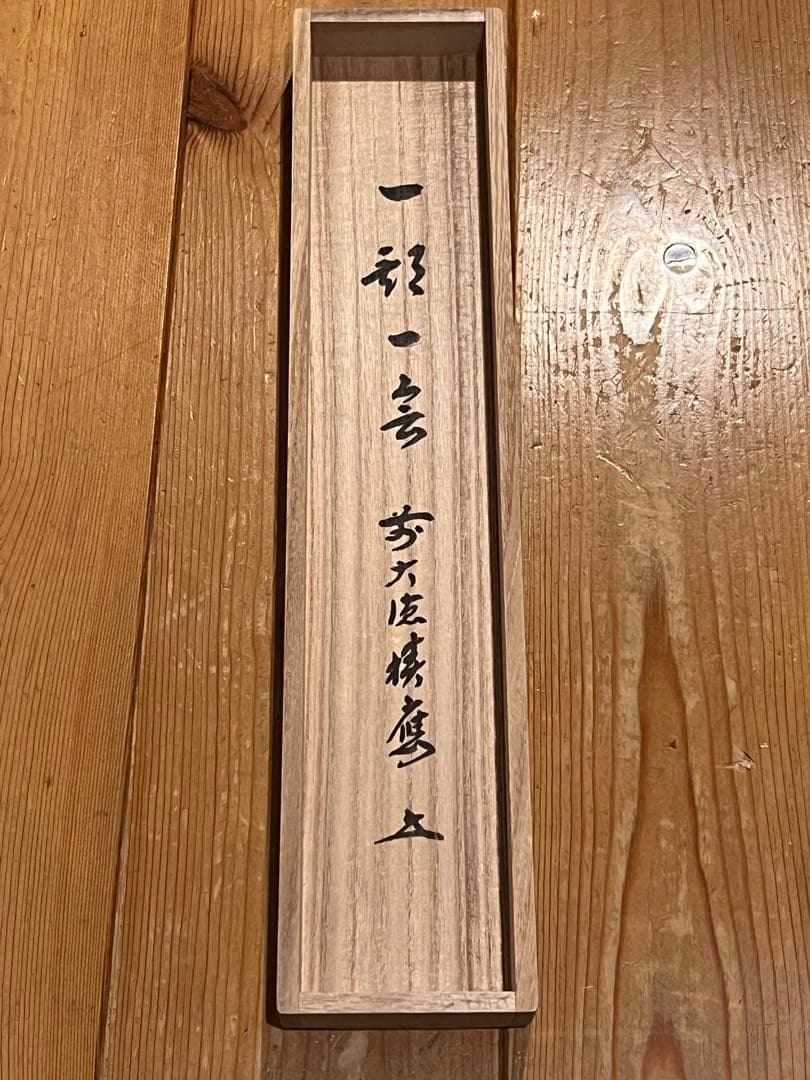 一期一会 前大徳積應